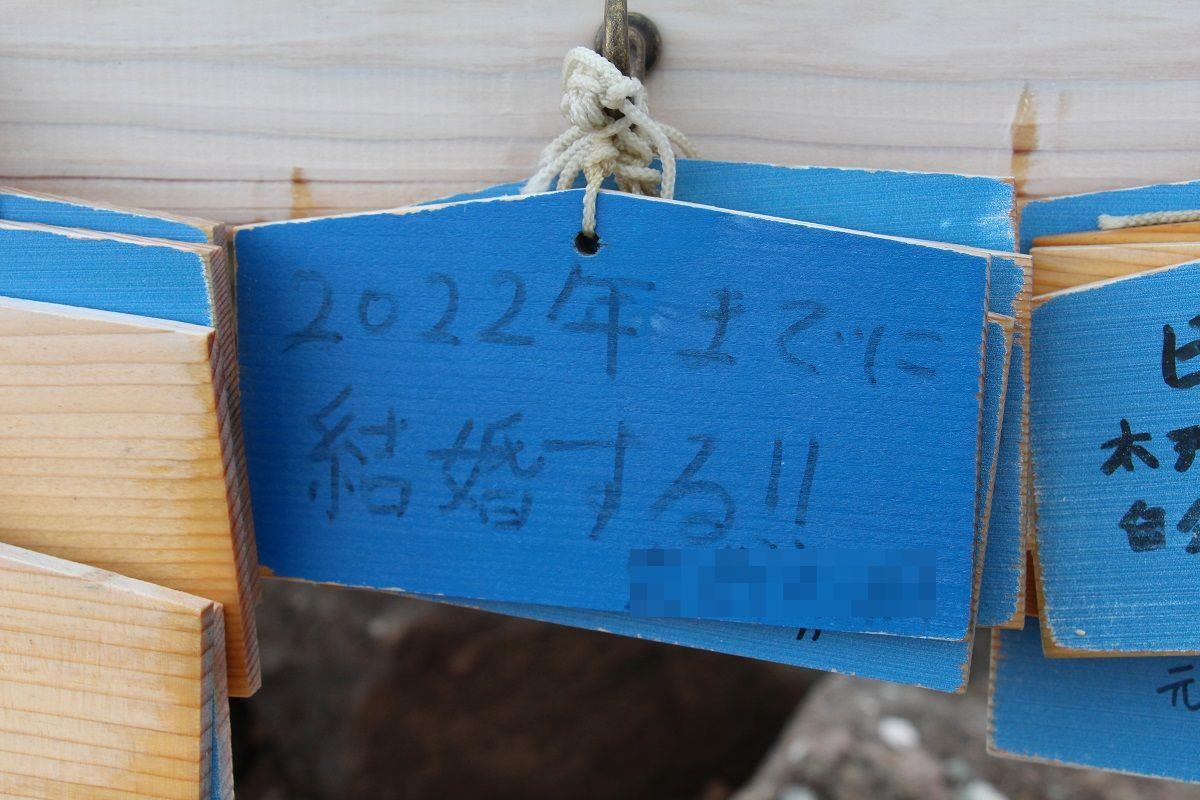 2022年までに
結婚する!!
木
元